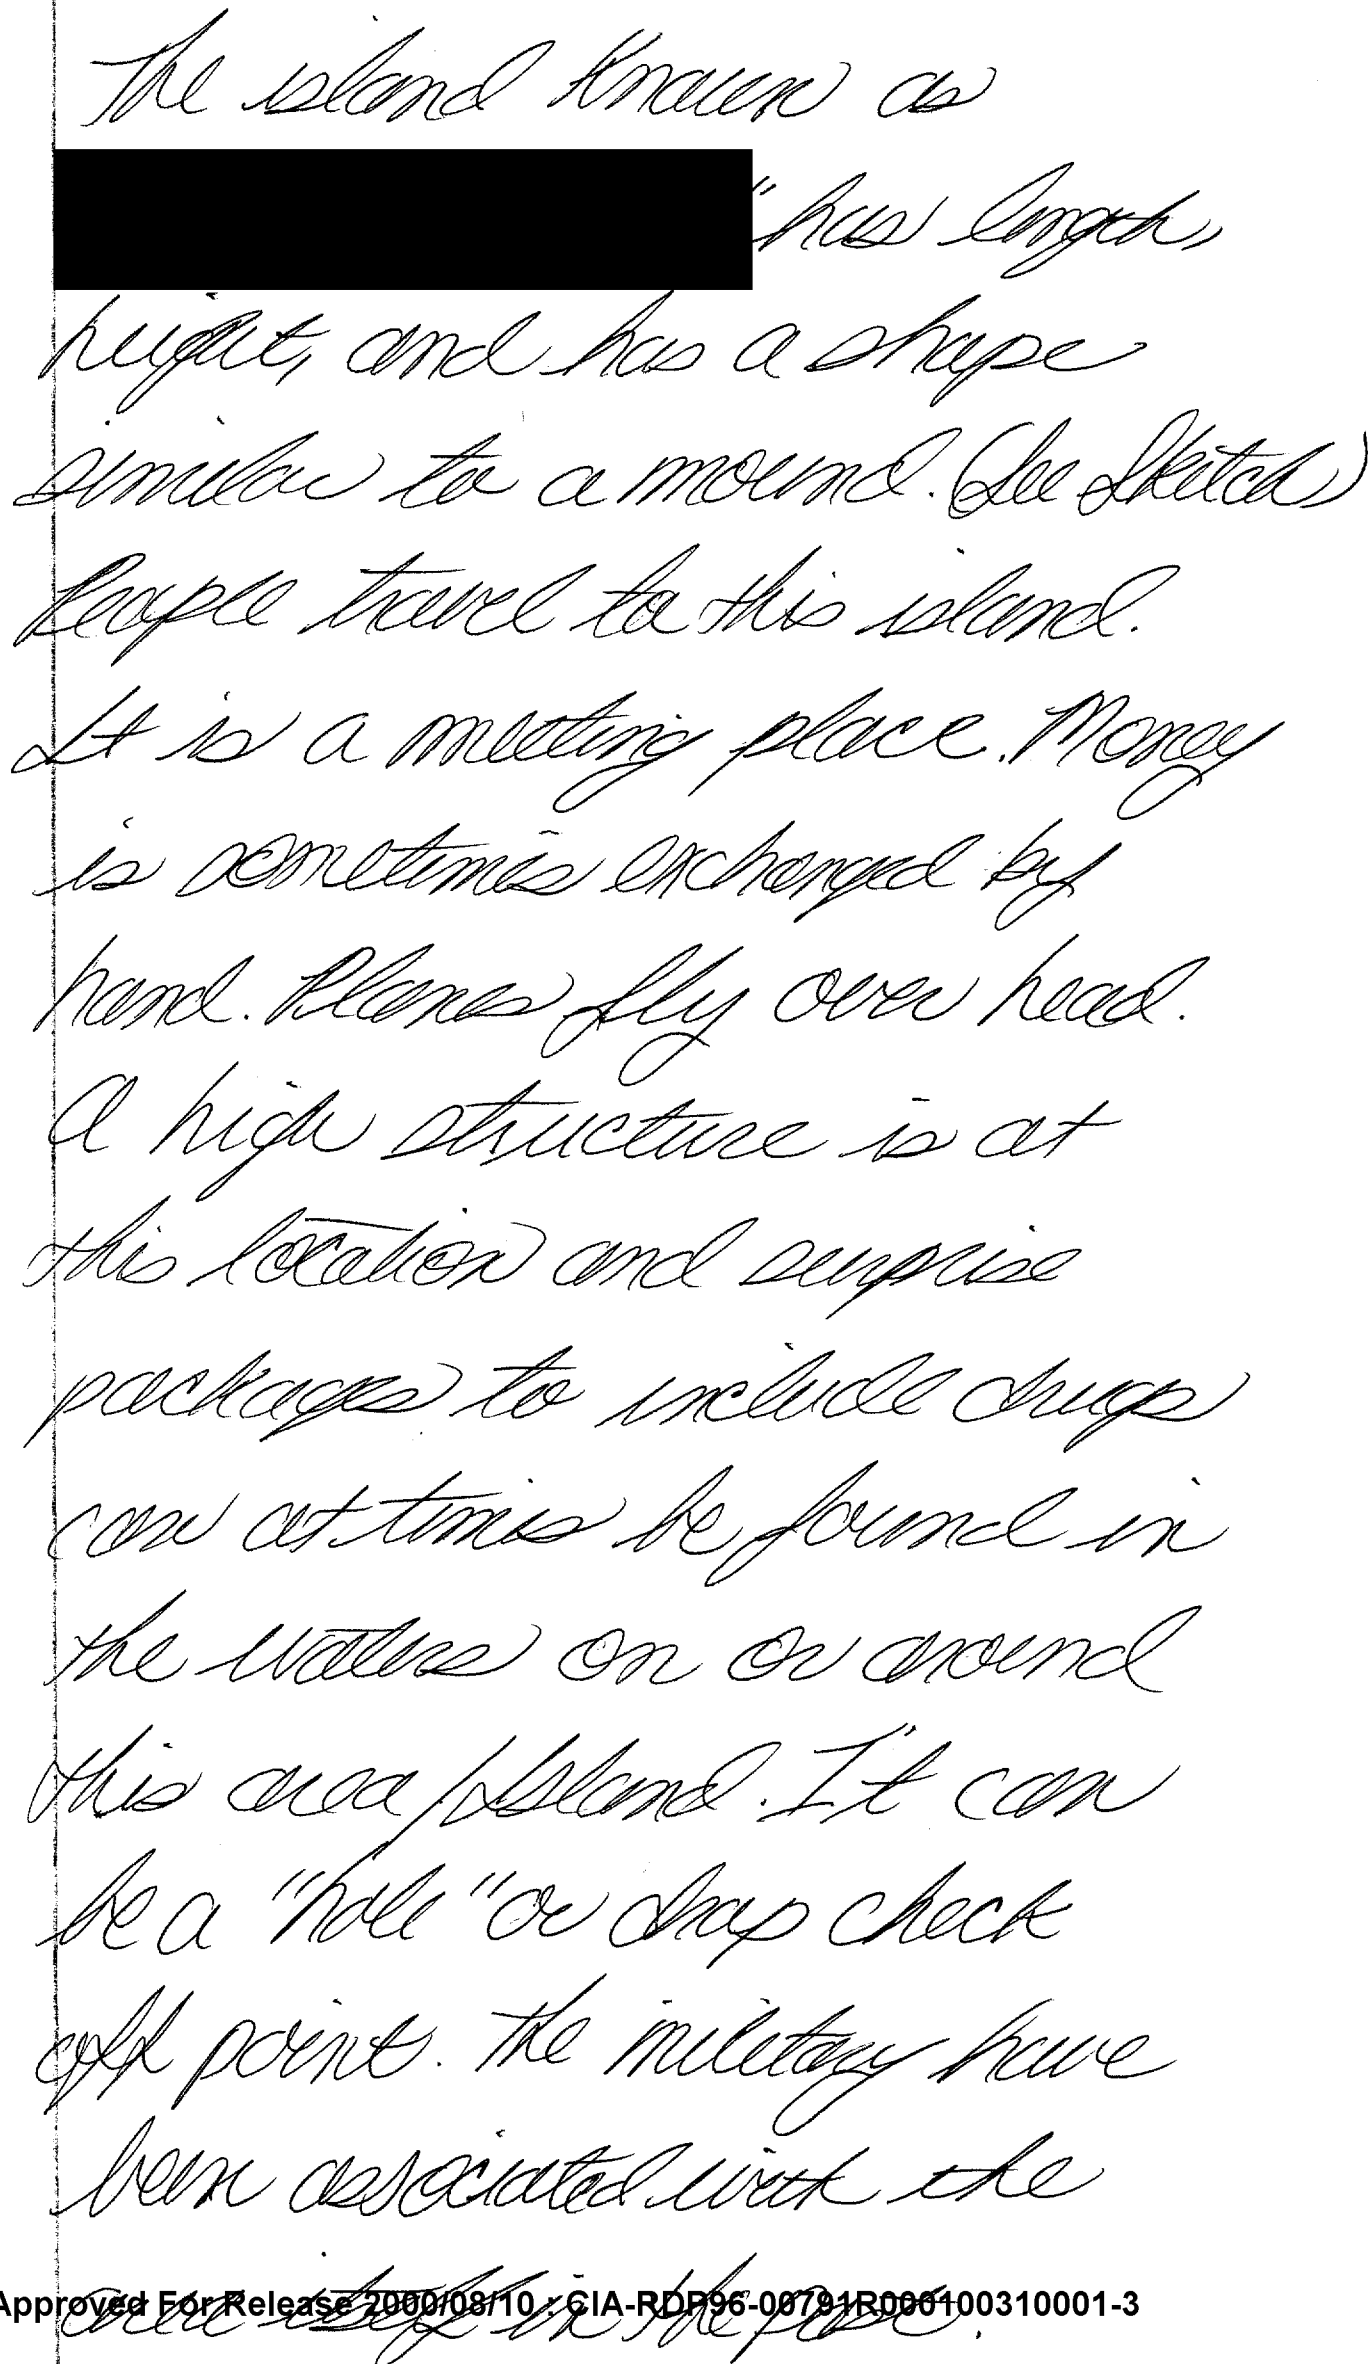 The island Known as
" has length,
height, and has a shape
similar to a mound. (See Sketch)
People travel to this island.
It is a meeting place. Money
is sometimes exchanged by
hand. Planes fly over head.
A high structure is at
this location and surprise
packages to include drugs
can at times be found in
the waters on or around
this area/Island. It can
be a "hole" or drop check
off point. The military have
been associated with the
area itself in the past.
Approved For Release 2000/08/10 : CIA-RDP96-00791R000100310001-3